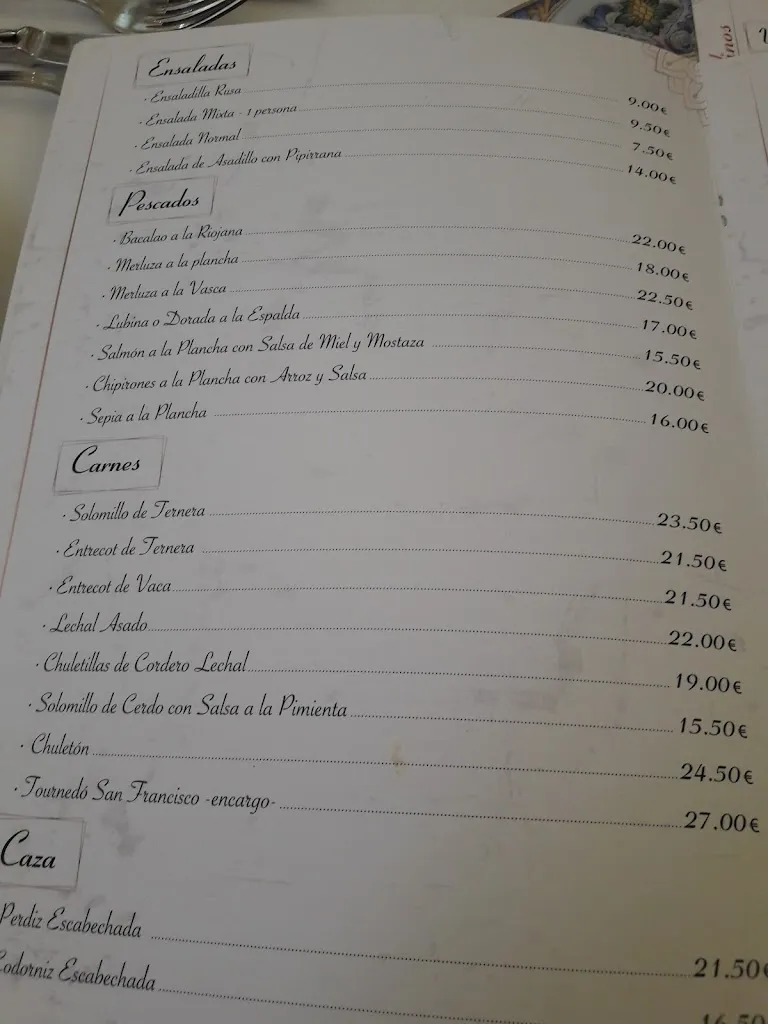 Ensaladas
· Ensaladilla Rusa 9.00€
· Ensalada Mixta - 1 persona 9.50€
· Ensalada Normal 7.50€
· Ensalada de Asadillo con Pipirrana 14.00€
Pescados
· Bacalao a la Riojana 22.00€
· Merluza a la plancha 18.00€
· Merluza a la Vasca 22.50€
· Lubina o Dorada a la Espalda 17.00€
· Salmón a la Plancha con Salsa de Miel y Mostaza 15.50€
· Chipirones a la Plancha con Arroz y Salsa 20.00€
· Sepia a la Plancha 16.00€
Carnes
· Solomillo de Ternera 23.50€
· Entrecot de Ternera 21.50€
· Entrecot de Vaca 21.50€
· Lechal Asado 22.00€
· Chuletillas de Cordero Lechal 19.00€
· Solomillo de Cerdo con Salsa a la Pimienta 15.50€
· Chuletón 24.50€
· Tournedó San Francisco -encargo- 27.00€
Caza
Perdiz Escabechada 21.50€
Codorniz Escabechada 16.50